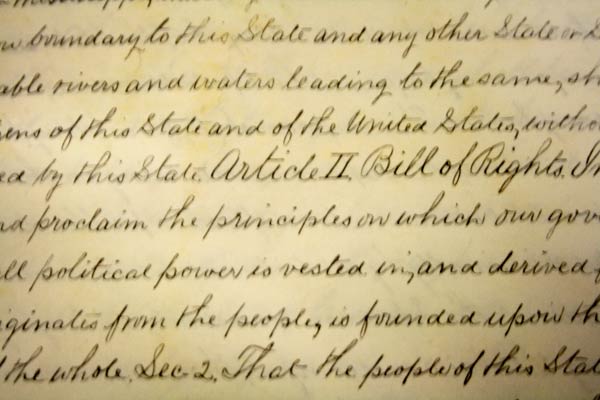 w boundary to this State and any other State or
able rivers and waters leading to the same, sh
ens of this State and of the United States, witho
ed by this State. Article II Bill of Rights. In
nd proclaim the principles on which our gov
ll political power is vested in, and derived
iginates from the people, is founded upon th
the whole. Sec. 2. That the people of this Stat